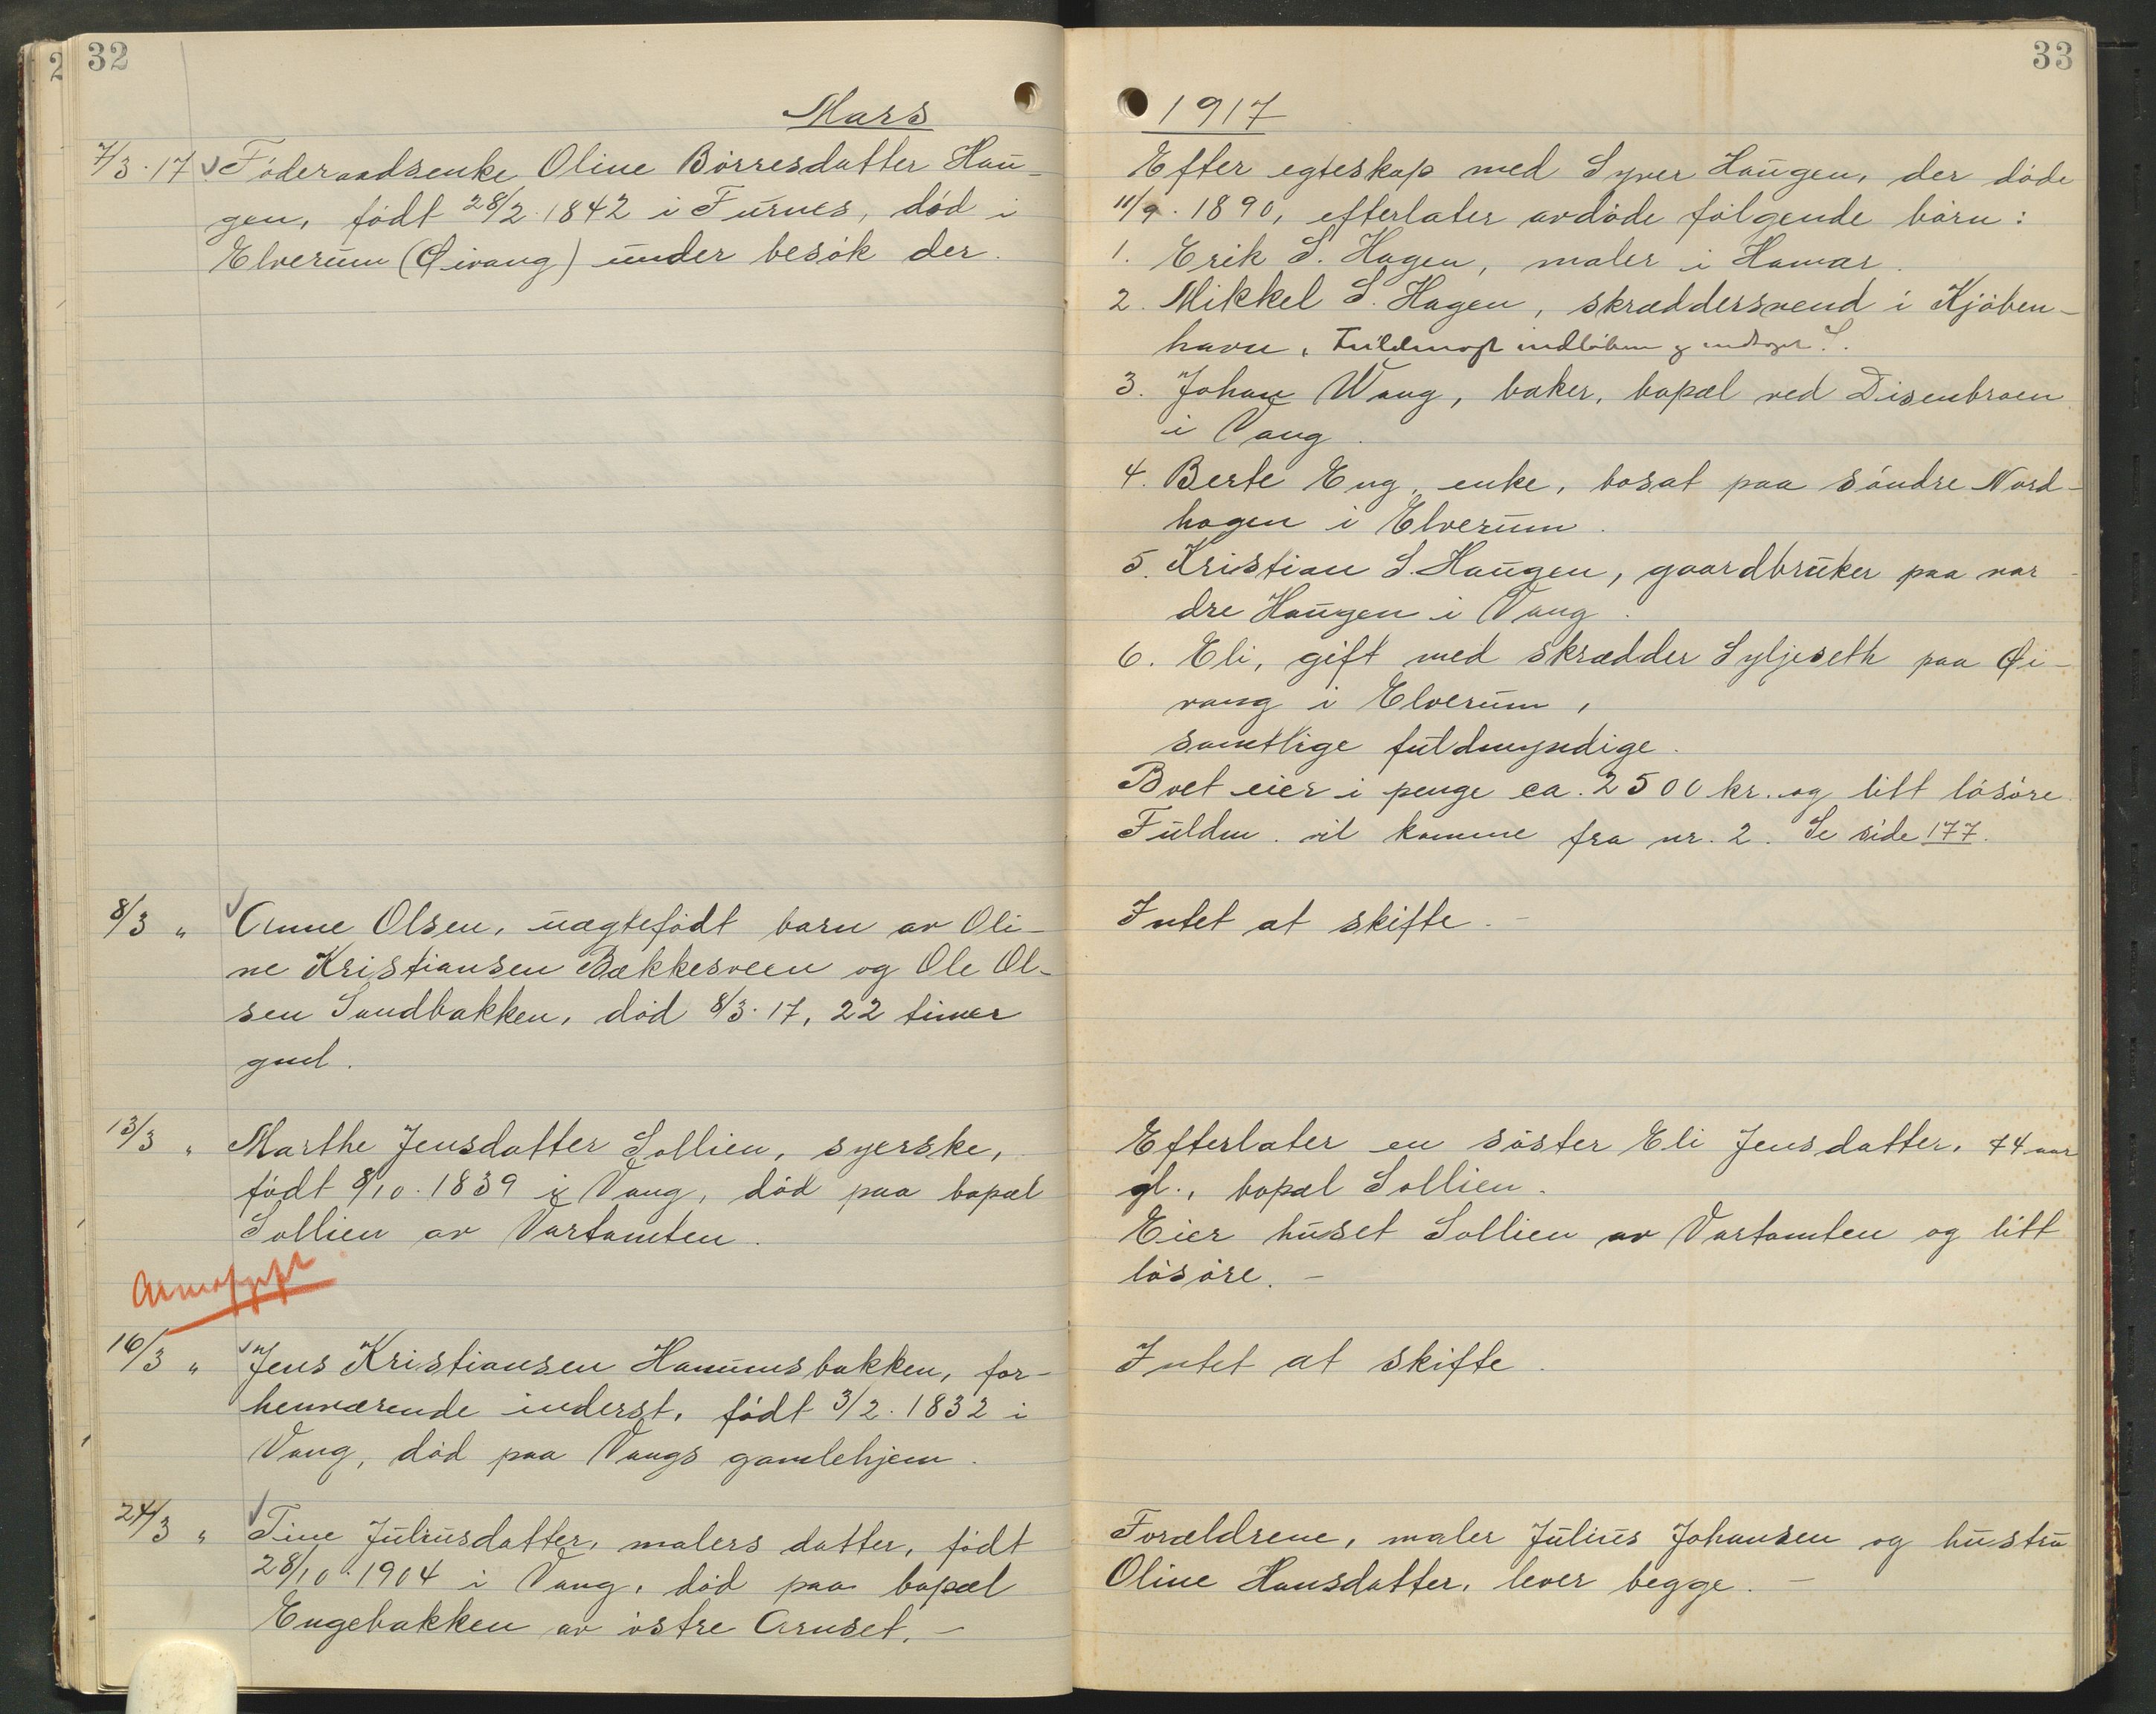 32
Mars
7/3. 17 Föderaadsenke Oline Börresdatter Hau-
gen, födt 28/2. 1842 i Furnes, död i
Elverum (Øivang) under besök der.
8/3 " Anne Olsen, uægtefödt barn av Oli-
ne Kristiansen Bækkesveen og Ole Ol-
sen Sandbakken, död 8/3. 17, 22 timer
gml.
13/3 " Marthe Jensdatter Sollien, syerske,
födt 8/10. 1839 i Vang, död paa bopæl
Sollien av Vartomten.
Arveafgift
16/3 " Jens Kristiansen Hanumsbakken, for-
henværende inderst, födt 3/2. 1832 i
Vang, död paa Vangs gamlehjem.
24/3 " Tine Juliusdatter, malers datter, födt
28/10. 1904 i Vang, död paa bopæl
Engebakken av östre Aruset. -
33
1917
Efter egteskap med Syver Haugen, der döde
11/9. 1890, efterlater avdöde fölgende börn:
1. Erik S. Hagen, maler i Hamar.
2. Mikkel S. Hagen, skræddersvend i Kjöben-
havn. Fuldmagt indlöben og
3. Johan Wang, baker, bopæl ved Disenbroen
i Vang.
4. Berte Eng, enke, bosat paa söndre Nord-
hagen i Elverum.
5. Kristian S. Haugen, gaardbruker paa nor-
dre Haugen i Vang.
6. Eli, gift med skrædder Syljeseth paa Øi-
vang i Elverum,
samtlige fuldmyndige.
Boet eier i penge ca. 2500 kr. og litt lösöre
Fuldm. vil komme fra nr. 2. Se side 177.
Intet at skifte. -
Efterlater en söster Eli Jensdatter, 74 aar
gl., bopæl Sollien.
Eier huset Sollien av Vartomten og litt
lösöre. -
Intet at skifte.
Forældrene, maler Julius Johansen og hustru
Oline Hansdatter, lever begge. -